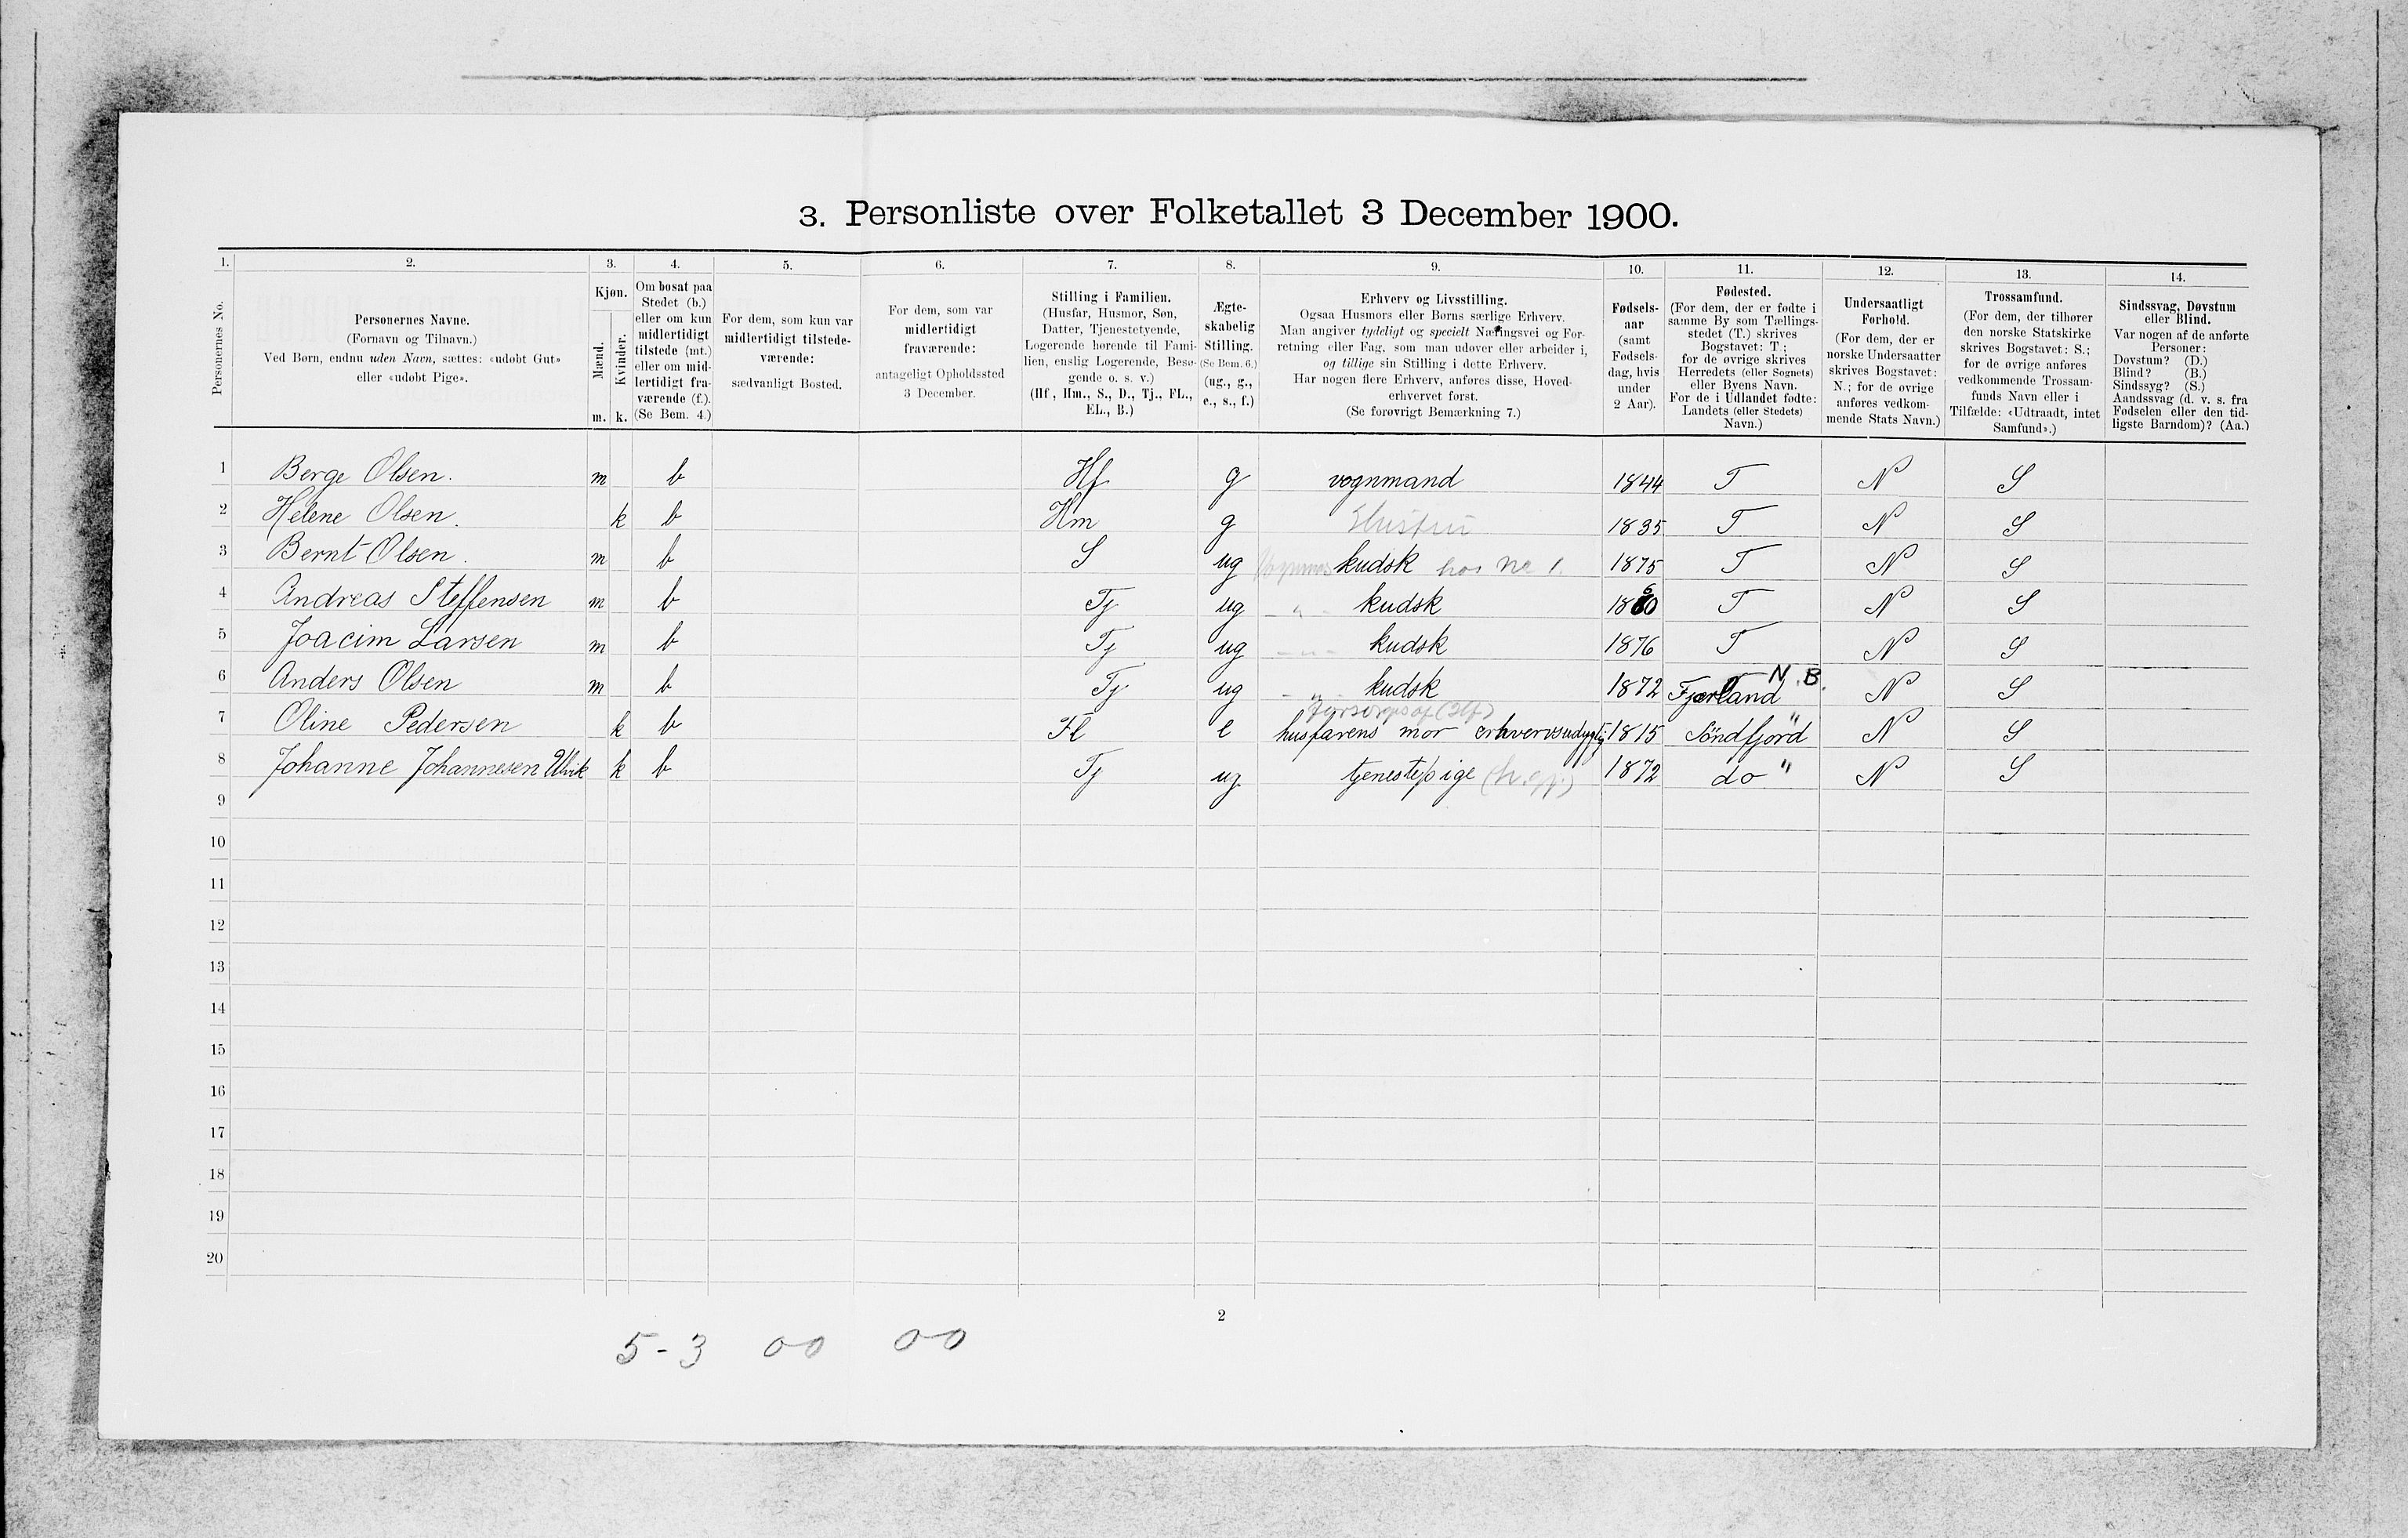 3. Personliste over Folketallet 3 December 1900.
1. 2. 3. 4. 5. 6. 7. 8. 9. 10. 11. 12. 13. 14.
Personernes No.
Personernes Navne.
(Fornavn og Tilnavn.)
Ved Børn, endnu uden Navn, sættes: «udøbt Gut»
eller «udøbt Pige».
Kjøn.
Mænd.
Kvinder.
m. k.
Om bosat paa
Stedet (b.)
eller om kun
midlertidigt
tilstede (mt.)
eller om mid-
lertidigt fra-
værende (f.).
(Se Bem. 4.)
For dem, som kun var
midlertidigt tilstede-
værende:
sædvanligt Bosted.
For dem, som var
midlertidigt
fraværende:
antageligt Opholdssted
3 December.
Stilling i Familien.
(Husfar, Husmor, Søn,
Datter, Tjenestetyende,
Logerende hørende til Fami-
lien, enslig Logerende, Besø-
gende o. s. v.)
(Hf., Hm., S., D., Tj., FL.,
EL., B.)
Ægte-
skabelig
Stilling.
(Se Bem. 6.)
(ug., g.,
e., s., f.)
Erhverv og Livsstilling.
Ogsaa Husmors eller Børns særlige Erhverv.
Man angiver tydeligt og specielt Næringsvei og For-
retning eller Fag, som man udøver eller arbeider i,
og tillige sin Stilling i dette Erhverv.
Har nogen flere Erhverv, anføres disse, Hoved-
erhvervet først.
(Se forøvrigt Bemærkning 7.)
Fødsels-
aar
(samt
Fødsels-
dag, hvis
under
2 Aar).
Fødested.
(For dem, der er fødte i
samme By som Tællings-
stedet (T.) skrives
Bogstavet: T;
for de øvrige skrives
Herredets (eller Sognets)
eller Byens Navn.
For de i Udlandet fødte:
Landets (eller Stedets)
Navn.)
Undersaatligt
Forhold.
(For dem, der er
norske Undersaatter
skrives Bogstavet:
N.; for de øvrige
anføres vedkom-
mende Stats Navn.)
Trossamfund.
(For dem, der tilhører
den norske Statskirke
skrives Bogstavet: S.;
for de øvrige anføres
vedkommende Trossam-
funds Navn eller i
Tilfælde: «Udtraadt, intet
Samfund».)
Sindssvag, Døvstum
eller Blind.
Var nogen af de anførte
Personer:
Døvstum? (D.)
Blind? (B.)
Sindssyg? (S.)
Aandssvag (d. v. s. fra
Fødselen eller den tid-
ligste Barndom)? (Aa.)
1 Berge Olsen. m b Hf g vognmand 1844 T N S
2 Helene Olsen. k b Hm g Hustru 1835 T N S
3 Bernt Olsen. m b S ug kudsk hos No 1. 1875 T N S
4 Andreas Steffensen m b Tj ug - " - kudsk T N S
5 Joacim Larsen m b Tj ug - " - kudsk 1876 T N S
6 Anders Olsen m b Tj ug - " - kudsk 1872 Fjærland N.B. N S
7 Oline Pedersen k b Fl e husfarens mor erhvervsudygtig 1815 Söndfjord " N S
8 Johanne Johannesen Ulvik k b Tj ug tjenestepige 1872 do " N S
9
10
11
12
13
14
15
16
17
18
19
20
2
5-3 00 00